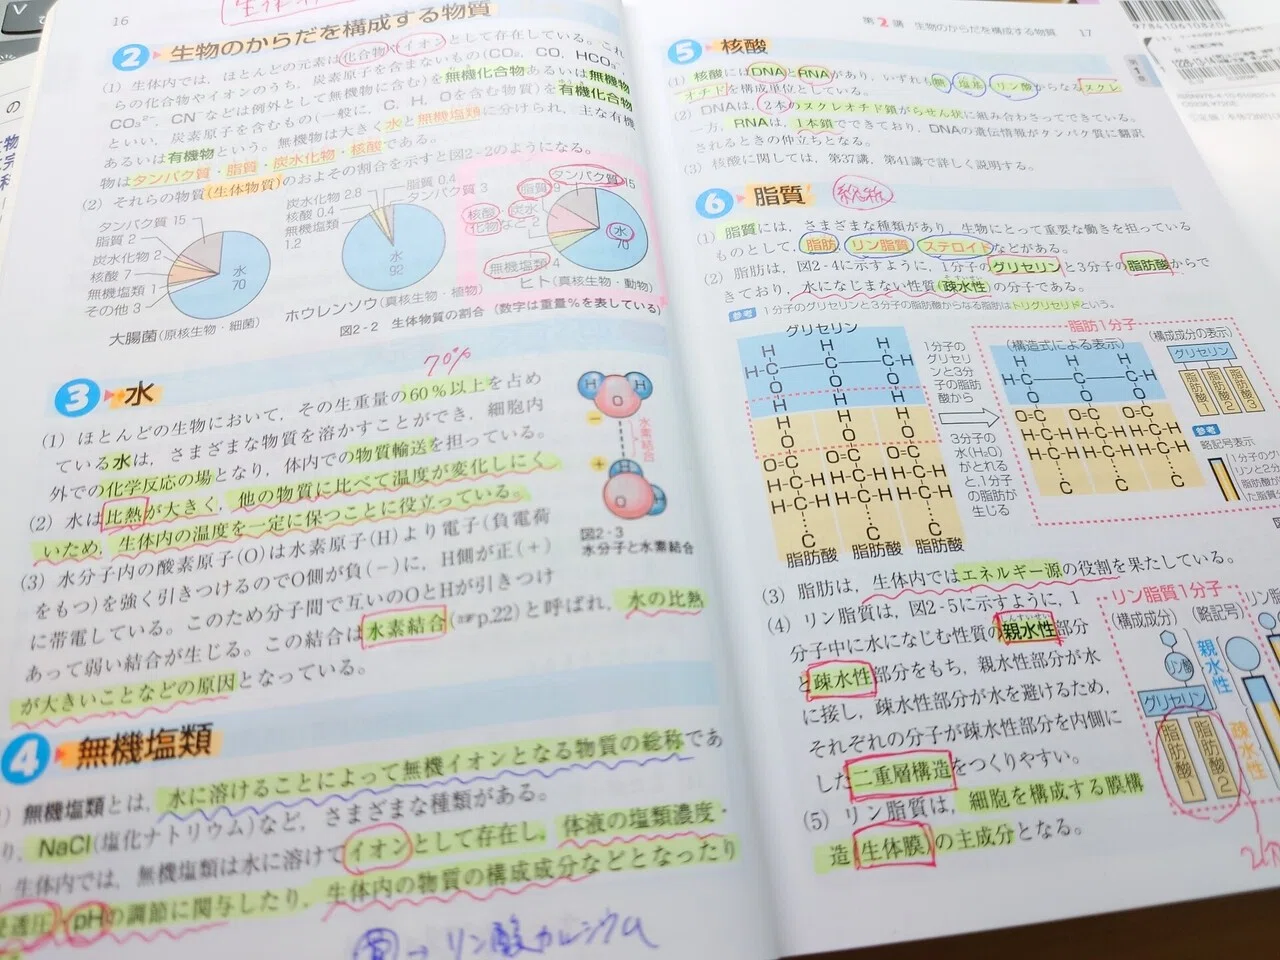 16
2 生物のからだを構成する物質
(1) 生体内では，ほとんどの元素は化合物やイオンとして存在している。これ
らの化合物やイオンのうち，炭素原子を含まないもの(CO₂，CO，HCO₃⁻，
CO₃²⁻，CN⁻などは例外として無機物に含む)を無機化合物あるいは無機物
といい，炭素原子を含むもの(一般に，C，H，Oを含む物質)を有機化合物
あるいは有機物という。無機物は大きく水と無機塩類に分けられ，主な有機
物はタンパク質・脂質・炭水化物・核酸である。
(2) それらの物質(生体物質)のおよその割合を示すと図2-2のようになる。
タンパク質 15
脂質 2
炭水化物 2
核酸 7
無機塩類 1
その他 3
水
70
大腸菌(原核生物・細菌)
炭水化物 2.8
核酸 0.4
無機塩類
1.2
脂質 0.4
タンパク質 3
水
92
ホウレンソウ(真核生物・植物)
タンパク質 15
脂質 9
核酸
炭水
化物など 2
無機塩類 4
水
70
ヒト(真核生物・動物)
図2-2 生体物質の割合 (数字は重量%を表している)
3 水
70%
(1) ほとんどの生物において，その生重量の60％以上を占め
ている水は，さまざまな物質を溶かすことができ，細胞内
外での化学反応の場となり，体内での物質輸送を担っている。
(2) 水は比熱が大きく，他の物質に比べて温度が変化しにく
いため，生体内の温度を一定に保つことに役立っている。
(3) 水分子内の酸素原子(O)は水素原子(H)より電子(負電荷
をもつ)を強く引きつけるのでO側が負(−)に，H側が正(+)
に帯電している。このため分子間で互いのOとHが引きつけ
あって弱い結合が生じる。この結合は水素結合(☞p.22)と呼ばれ，水の比熱
が大きいことなどの原因となっている。
H H
O
−
水素結合
+
O
図2-3
水分子と水素結合
4 無機塩類
無機塩類とは，水に溶けることによって無機イオンとなる物質の総称であ
り，NaCl(塩化ナトリウム)など，さまざまな種類がある。
生体内では，無機塩類は水に溶けてイオンとして存在し，体液の塩類濃度・
浸透圧・pHの調節に関与したり，生体内の物質の構成成分などとなったり
骨 → リン酸カルシウム
第2講 生物のからだを構成する物質 17
5 核酸
(1) 核酸にはDNAとRNAがあり，いずれも糖・塩基・リン酸からなるヌクレ
オチドを構成単位としている。
(2) DNAは，2本のヌクレオチド鎖がらせん状に組み合わさってできている。
一方，RNAは，1本鎖でできており，DNAの遺伝情報がタンパク質に翻訳
されるときの仲立ちとなる。
(3) 核酸に関しては，第37講，第41講で詳しく説明する。
6 脂質
総称
(1) 脂質には，さまざまな種類があり，生物にとって重要な働きを担っている
ものとして，脂肪，リン脂質，ステロイドなどがある。
(2) 脂肪は，図2-4に示すように，1分子のグリセリンと3分子の脂肪酸からで
きており，水になじまない性質(疎水性)の分子である。
参考 1分子のグリセリンと3分子の脂肪酸からなる脂肪はトリグリセリドという。
グリセリン
脂肪酸 脂肪酸 脂肪酸
1分子の
グリセリ
ンと3分
子の脂肪
酸から
3分子の
水(H₂O)
がとれる
と，1分子
の脂肪が
生じる
脂肪1分子
(構造式による表示)
(構成成分の表示)
グリセリン
脂肪酸1 脂肪酸2 脂肪酸3
参考
略記号表示
(3) 脂肪は，生体内ではエネルギー源の役割を果たしている。
(4) リン脂質は，図2-5に示すように，1
分子中に水になじむ性質の親水性部分
と疎水性部分をもち，親水性部分が水
に接し，疎水性部分が水を避けるため，
それぞれの分子が疎水性部分を内側に
した二重層構造をつくりやすい。
(5) リン脂質は，細胞を構成する膜構
造(生体膜)の主成分となる。
リン脂質1分子
(構成成分) (略記号)
リン酸
グリセリン
脂肪酸1 脂肪酸2
親水性
疎水性
9784106108204